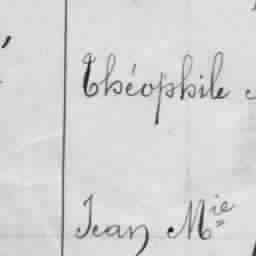 Théophile
Jean Mie